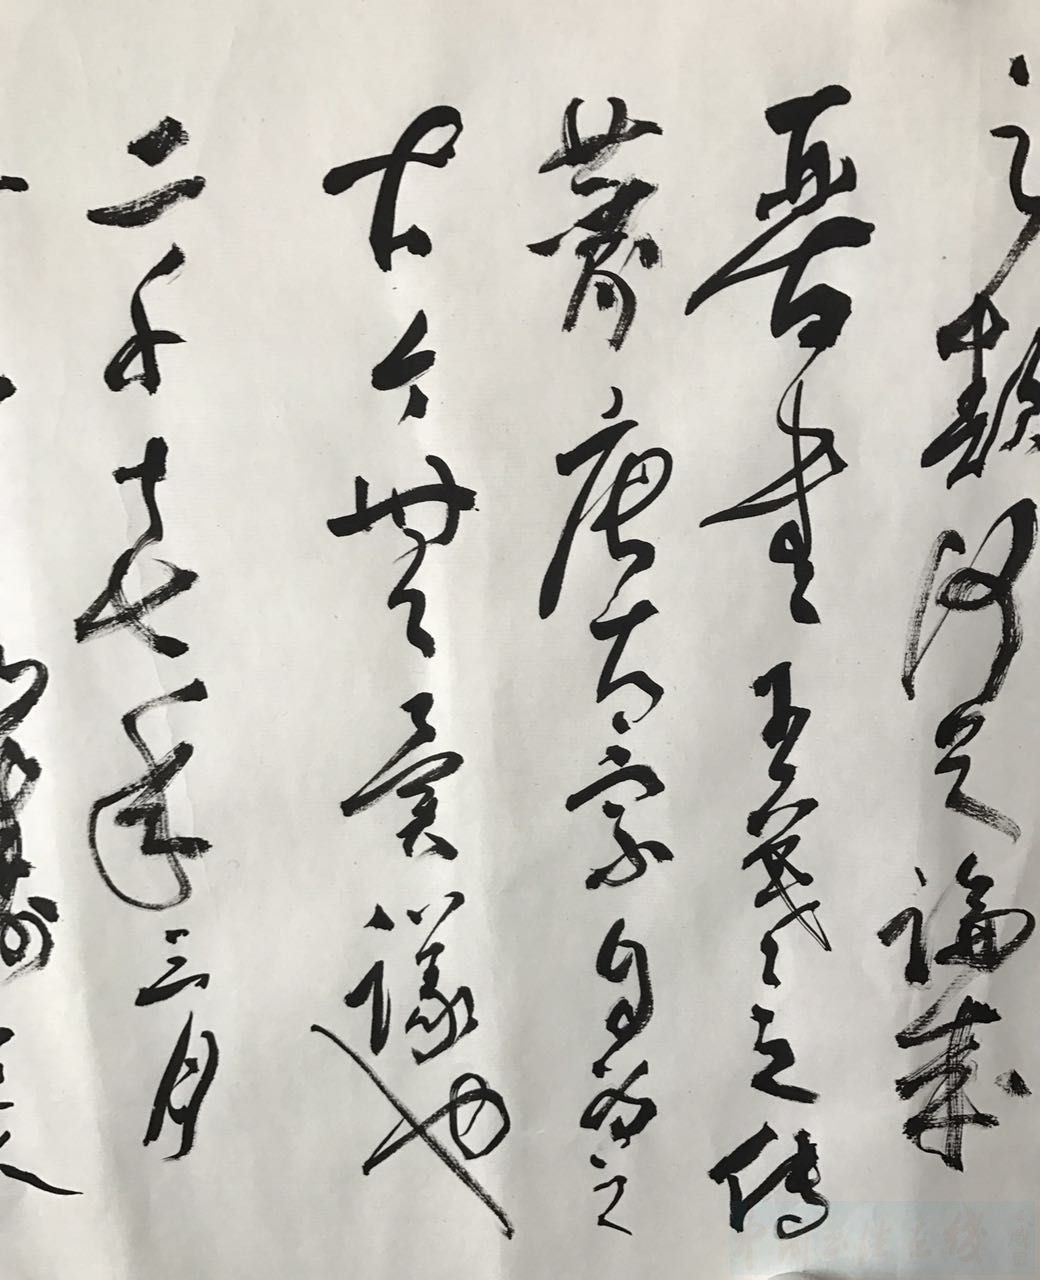 之類何足論哉
晉書王羲之立傳
唐太宗自為之
古今無異議也
二千十七年三月